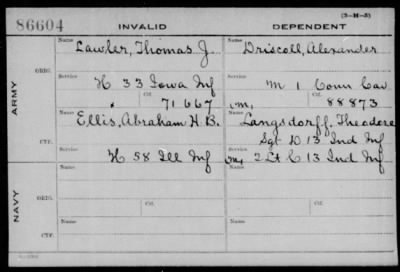 (3-H-3)
86604 INVALID DEPENDENT
Name Name
Lawler, Thomas J. Driscoll, Alexander
ORIG.
Service Service
H 33 Iowa Inf M 1 Conn Cav
Ctf. Ctf.
71667 88873
ARMY
Name Name
Ellis, Abraham H. B. Langsdorff, Theodore
Sgt D 13 Ind Inf
CTF.
Service Service
K 58 Ill Inf 2 Lt C 13 Ind Inf
NAVY
Name Ctf. Name Ctf.
ORIG.
Service Service
Name Name
CTF.
Service Service